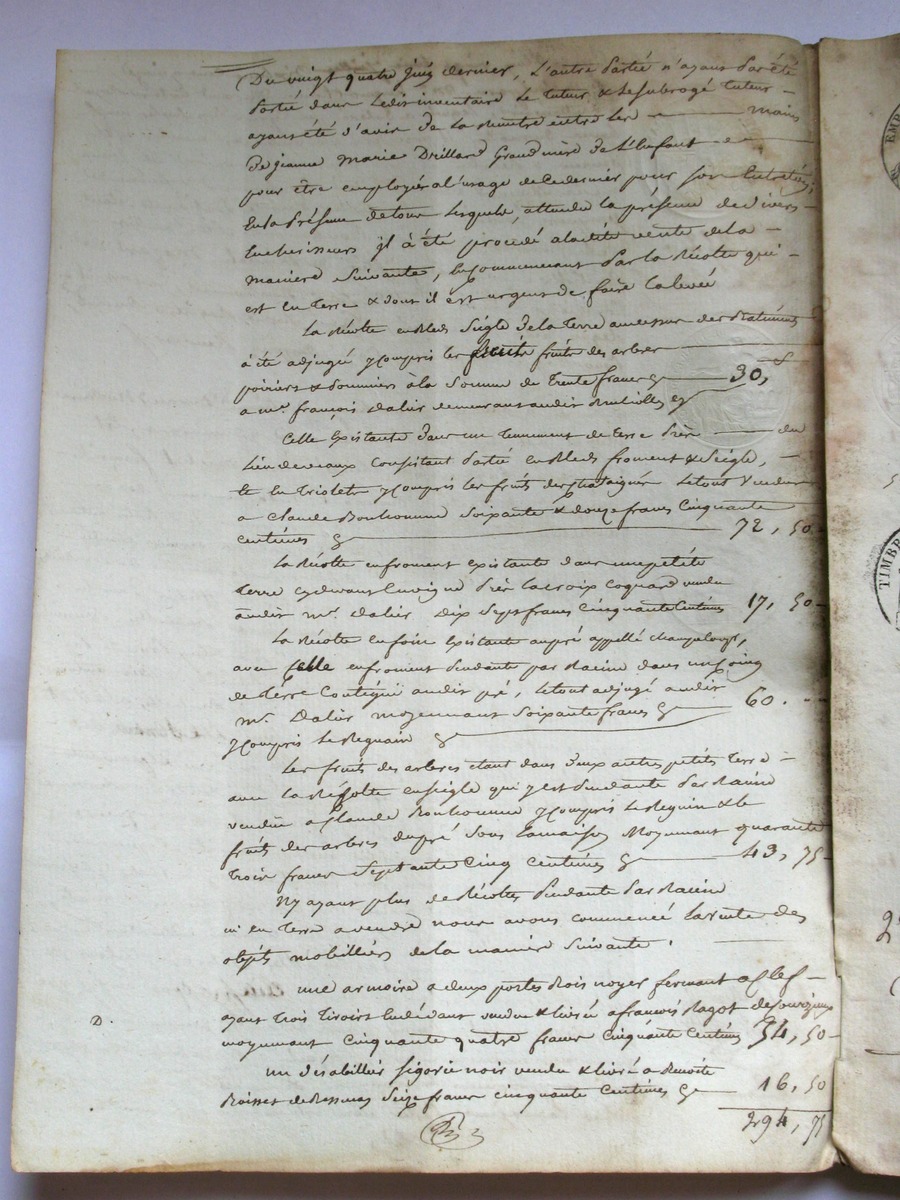 Du vingt quatre juin dernier, l'autre Partie n'ayant Par été
Portée dans ledit inventaire le tuteur & le subrogé tuteur
ayant été d'avis de la Remettre entre les mains
De jeanne Marie Drillard Grand mère de l'Enfant
pour être employée a l'usage de Ce dernier pour son Entretien,
En la Présence de tous lesquels, attendu la présence de divers
Encherisseurs il à été procédé a la dite vente de la
maniere Suivante, En Commencant Par la Récolte qui
est En Terre & dont il est urgent de faire la levée
La Récolte en Bleds Seigle De la Terre au dessus des Batiments
à été adjugé y Compris les fruits des arbres
poiriers & Pommiers à la Somme de Trente francs 30,
a mr. françois Dalier demeurant audit
Celle Existante dans un Tennement de Terre Près du
Lieu de Consistant Partie en Bleds froment & Seigle,
& En Triolet y Compris les fruits des chataigners Le tout Vendu
a Claude Bonhomme Soixante & douze francs Cinquante
Centimes 72, 50
La Récolte en froment Existante dans une petite
Terre cy devant En vigne Près La croix Coquard vendu
audit mr. Dalier Dix Sept francs Cinquante Centimes 17, 50
La Récolte en foin Existante au pré appellé
avec Celle en froment Pendante par Racine dans un Coing
de Terre Contigüe audit pré, Le tout adjugé audit
mr. Dalier moyennant Soixante francs 60. ..
y Compris Le Regain
Les fruits des arbres étant dans Deux autres petites Terre
avec La Récolte en seigle qui y est Pendante Par Racine
vendue a Claude Bonhomme y Compris Le Regain & le
fruits des arbres du pré Sous La maison Moyennant quarante
Trois francs Septante Cinq Centimes 43, 75
N'y ayant plus de Récoltes Pendante Par Racine
ni en Terre a vendre nous avons Commencé La vente des
objets mobilliers de la maniere Suivante.
une armoire a deux portes Bois noyer fermant a Clef
ayant Trois Tiroirs En dedans vendue & livrée a francois Ragot de
moyennant Cinquante quatre francs Cinquante Centimes 54, 50
D.
un désabillier noir vendu & livré a Benoite
de Seize francs Cinquante Centimes 16, 50
294, 75